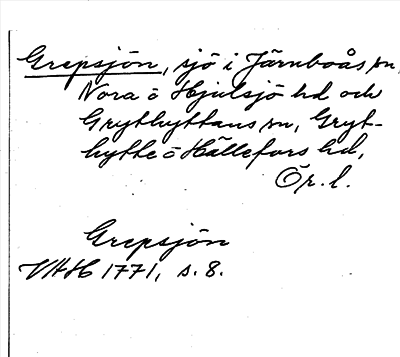 Grepsjön, sjö i Järnboås sn,
Nora o Hjulsjö hd och
Grythyttans sn, Gryt-
hytte o Hällefors hd,
Ör. l.
Grepsjön
VHH 1771, s. 8.